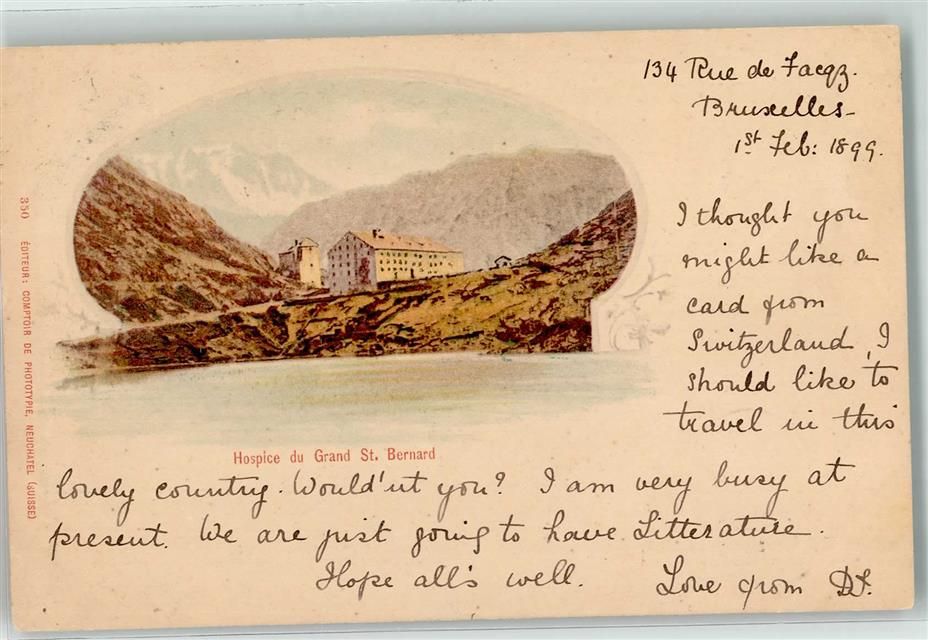 134 Rue de Facqz.
Bruxelles-
1st Feb: 1899.
I thought you
might like a
card from
Switzerland, I
should like to
travel in this
lovely country. Would'nt you? I am very busy at
present. We are just going to have Litterature.
Hope all's well. Love from
Hospice du Grand St. Bernard
350 ÉDITEUR: COMPTOIR DE PHOTOTYPIE, NEUCHATEL (SUISSE)